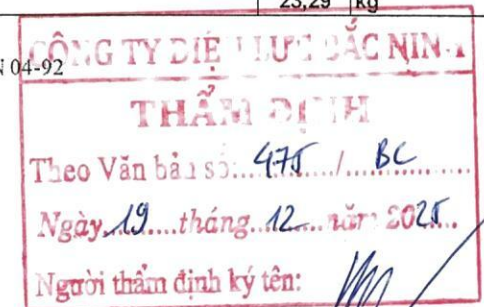 23,29 kg
N 04-92
CÔNG TY ĐIỆN LỰC BẮC NINH
THẨM ĐỊNH
Theo Văn bản số: 475 / BC
Ngày 19 tháng 12 năm 2025
Người thẩm định ký tên: